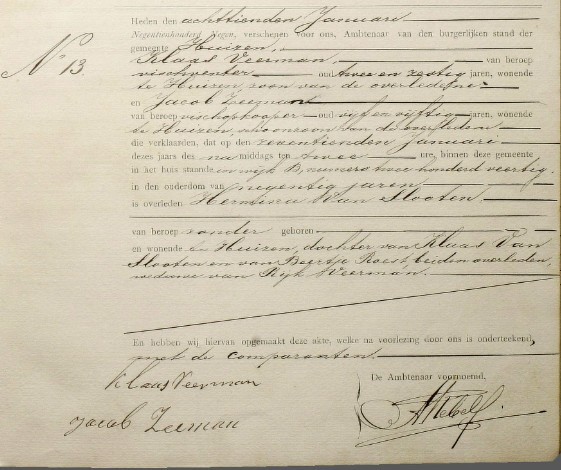 Nº 13
Heden den achttienden Januari
Negentienhonderd Negen, verschenen voor ons, Ambtenaar van den burgerlijken stand der
gemeente Huizen,
Klaas Veerman, van beroep
vischventer oud twee en zestig jaren, wonende
te Huizen, zoon van de overledene
en Jacob Zeeman
van beroep vischkooper oud vijf en vijftig jaren, wonende
te Huizen, schoonzoon van de overleden
die verklaarden, dat op den zeventienden Januari
dezes jaars des na middags ten twee ure, binnen deze gemeente
in het huis staande in wijk B, numero twee honderd veertig
in den ouderdom van negentig jaren
is overleden Hermina Van Slooten,
van beroep zonder geboren
en wonende te Huizen, dochter van Klaas Van
Slooten en van Beertje Roest, beiden overleden,
weduwe van Rijk Veerman.
En hebben wij hiervan opgemaakt deze akte, welke na voorlezing door ons is onderteekend,
met de comparanten.
Klaas Veerman
De Ambtenaar voornoemd,
Jacob Zeeman